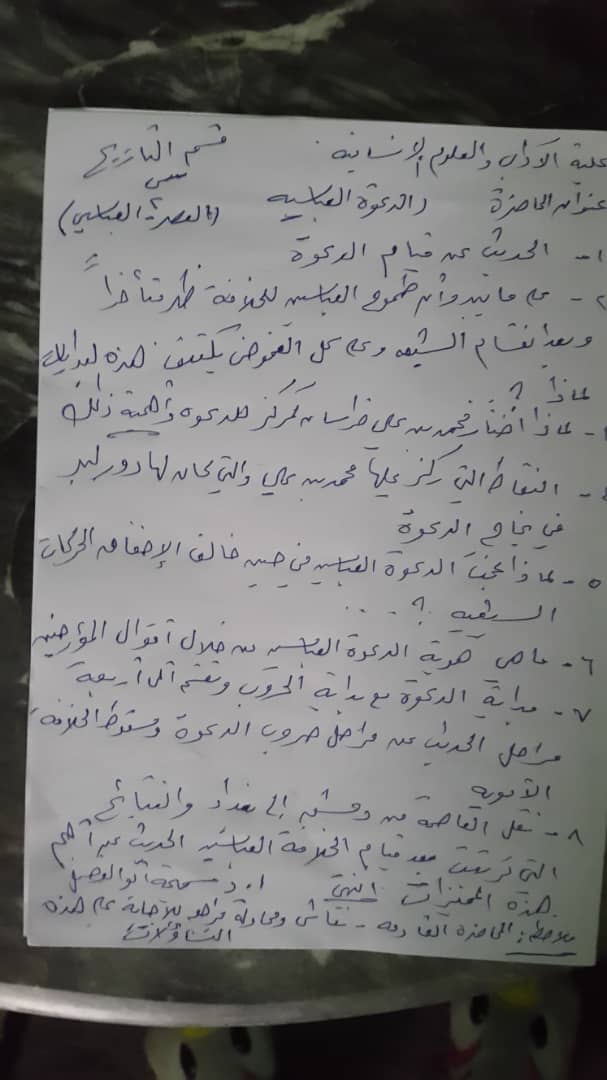 كلية الآداب والعلوم الإنسانية. قسم التاريخ
عنوان المحاضرة (الدعوة العباسية (العصر العباسي)
١- الحديث عن قيام الدعوة
٢- على ما يبدو أن طموح العباسين للخلافة ظهر متأخراً
وبعد انقسام الشيعه وعلى كل الغموض يكتنف هذه البدايات
لماذا؟
٣- لماذا أختار محمد بن علي خراسان كمركز للدعوة وأهمية ذلك
٤- النقاط التي ركز عليها محمد بن علي والتي كان لها دور كبير
في نجاح الدعوة
٥- لماذا نجحت الدعوة العباسية في حين حالف الإخفاق الحركات
السابقة؟ ...
٦- ماهي هوية الدعوة العباسية من خلال أقوال المؤرخين
٧- بداية الدعوة مع بداية الحروب وتقسم الى أربعة
مراحل الحديث عن مراحل حروب الدعوة وسقوط الخلافة
الأموية
٨- نقل العاصمة من دمشق إلى بغداد والنتائج
التي ترتبت بعد قيام الخلافة العباسية الحديث عن أهم
هذه المميزات انتهى أ.د. أبو الفضل
ملاحظة: المحاضرة القادمه - نقاش ومحاولة للاجابة على هذه
التساؤلات